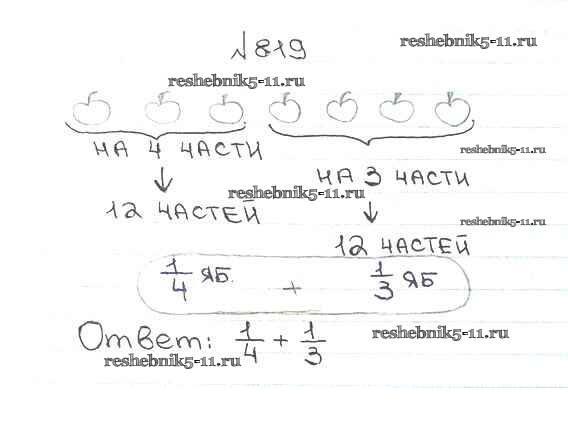 №819
reshebnik5-11.ru
reshebnik5-11.ru
НА 4 ЧАСТИ
reshebnik5-11.ru
НА 3 ЧАСТИ
reshebnik5-11.ru
12 ЧАСТЕЙ
reshebnik5-11.ru
12 ЧАСТЕЙ
1/4 ЯБ. + 1/3 ЯБ
Ответ: 1/4 + 1/3
reshebnik5-11.ru
reshebnik5-11.ru